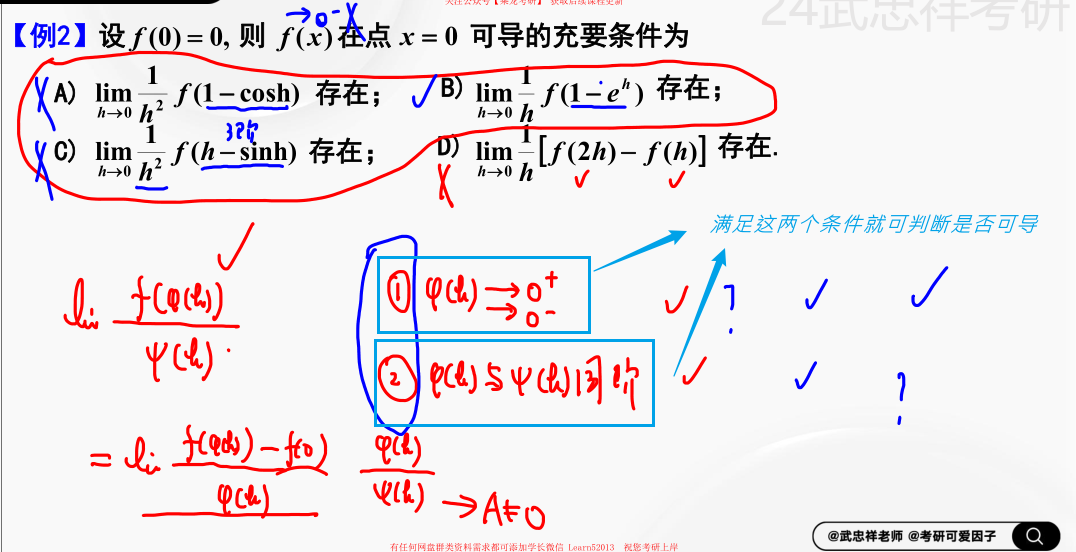 关注公众号【乘龙考研】 获取后续课程更新
24武忠祥考研
→0⁻
【例2】设 f(0) = 0, 则 f(x) 在点 x = 0 可导的充要条件为
A) lim_{h→0} 1/h² f(1 − cosh) 存在; B) lim_{h→0} 1/h f(1 − e^h) 存在;
3阶
C) lim_{h→0} 1/h² f(h − sinh) 存在; D) lim_{h→0} 1/h [f(2h) − f(h)] 存在.
满足这两个条件就可判断是否可导
lim f(φ(h))/ψ(h)
① φ(h) → 0⁺ → 0⁻ ✓ ? ✓ ✓
② φ(h)与ψ(h)同阶 ✓ ✓ ?
= lim (f(φ(h)) − f(0))/φ(h) φ(h)/ψ(h) → A≠0
@武忠祥老师 @考研可爱因子
有任何网盘群类资料需求都可添加学长微信 Learn52013 祝您考研上岸